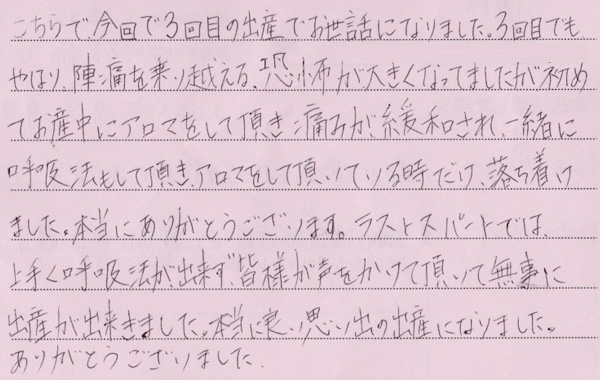 こちらで今回で3回目の出産でお世話になりました。3回目でも
やはり、陣痛を乗り越える、恐怖が大きくなってましたが初め
てお産中にアロマをして頂き痛みが緩和され、一緒に
呼吸法もして頂き、アロマをして頂いている時だけ、落ち着け
ました。本当にありがとうございます。ラストスパートでは、
上手く呼吸法が出来ず、皆様が声をかけて頂いて無事に
出産が出来きました。本当に良い思い出の出産になりました。
ありがとうございました.